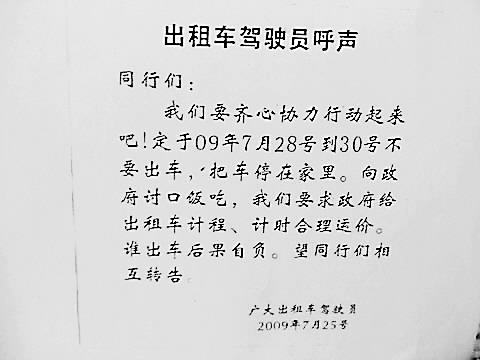 出租车驾驶员呼声
同行们：
我们要齐心协力行动起来
吧！定于09年7月28号到30号不
要出车，把车停在家里。向政
府讨口饭吃，我们要求政府给
出租车计程、计时合理运价。
谁出车后果自负。望同行们相
互转告。
广大出租车驾驶员
2009年7月25号